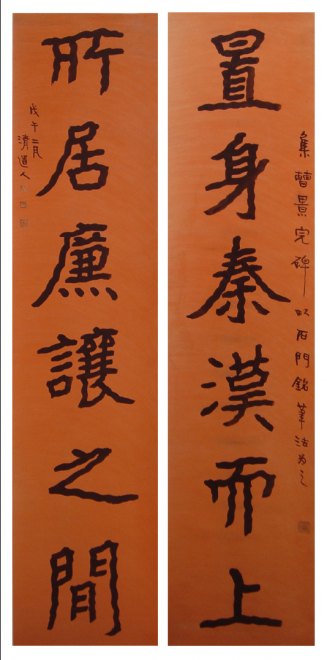 集曹景完碑以石門銘筆法為之
置身秦漢而上
所居廉讓之間
戊午二月
清道人